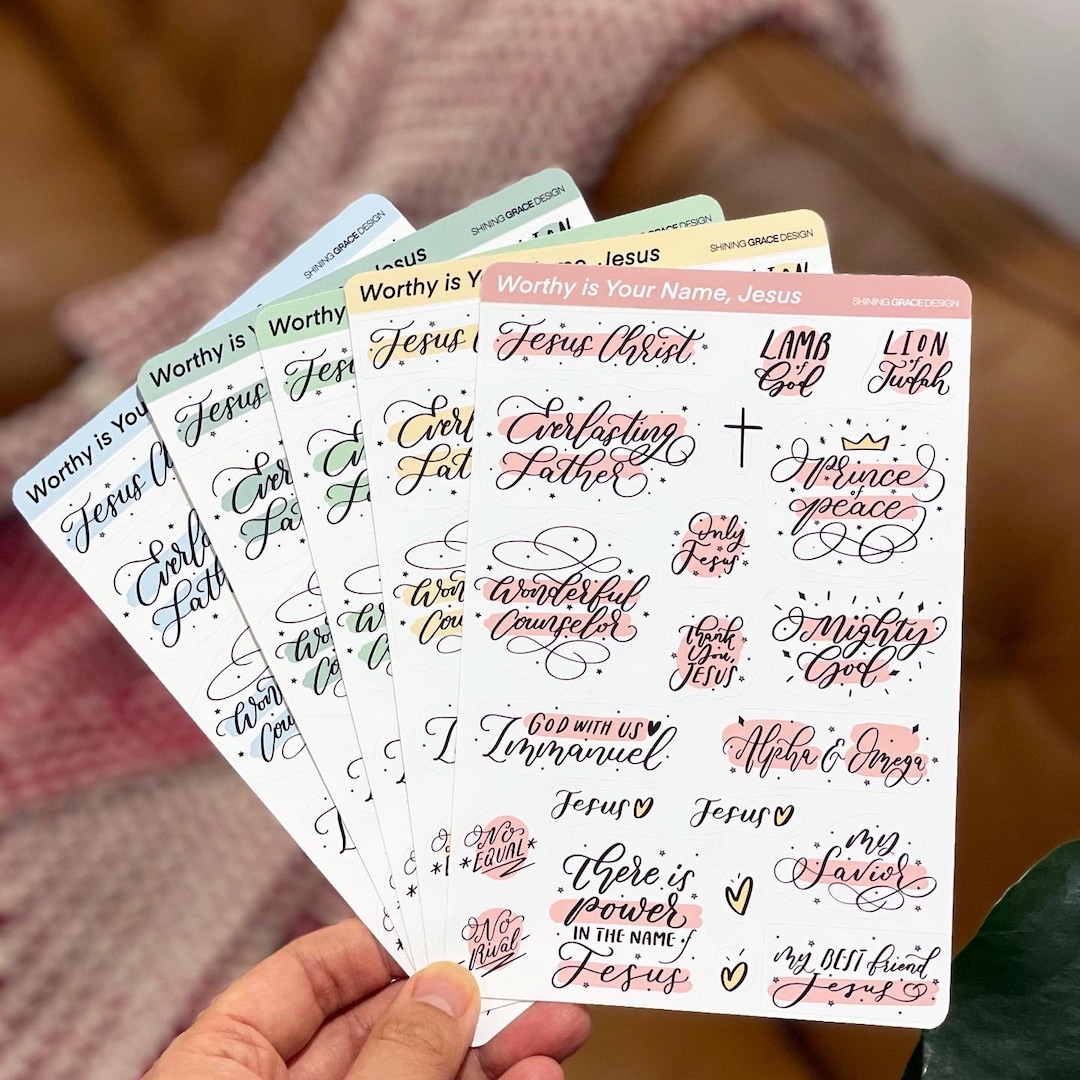 Worthy is Your Name, Jesus
SHINING GRACE DESIGN
Jesus Christ
LAMB
of
God
LION
of
Judah
Everlasting
Father
Prince
of
peace
Only
Jesus
Wonderful
Counselor
Thank
You,
JESUS
Mighty
God
GOD WITH US
Immanuel
Alpha & Omega
Jesus
Jesus
No
EQUAL
My
Savior
There is
power
IN THE NAME of
Jesus
No
Rival
My BEST friend
Jesus
Jesus
SHINING GRACE DESIGN
Worthy is
Jesus
Worthy
Jesus
SHINING GRACE DESIGN
Worthy is
Jesus
SHINING GRACE DESIGN
Worthy is You
Jesus